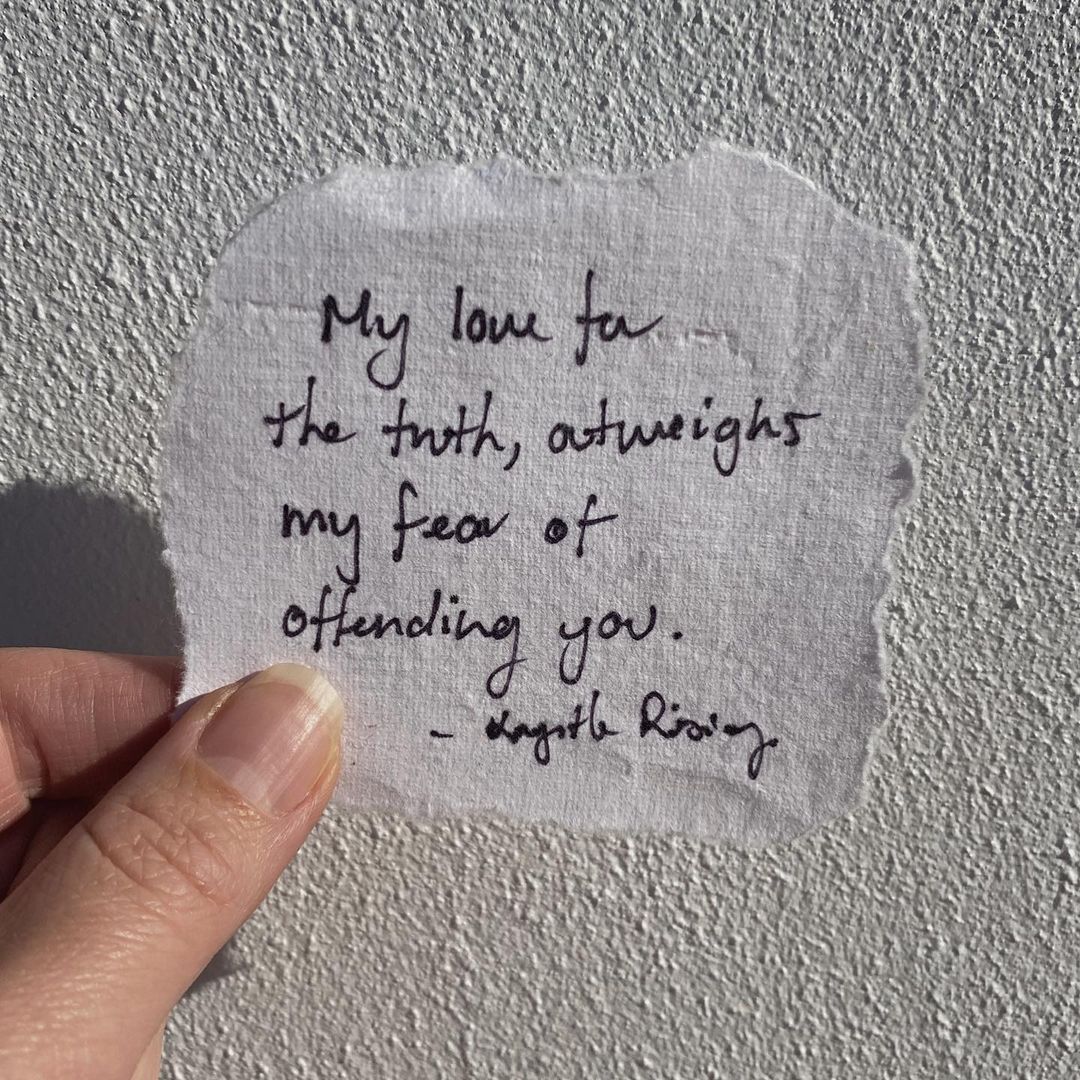 My love for
the truth, outweighs
my fear of
offending you.
- Krystle Rising